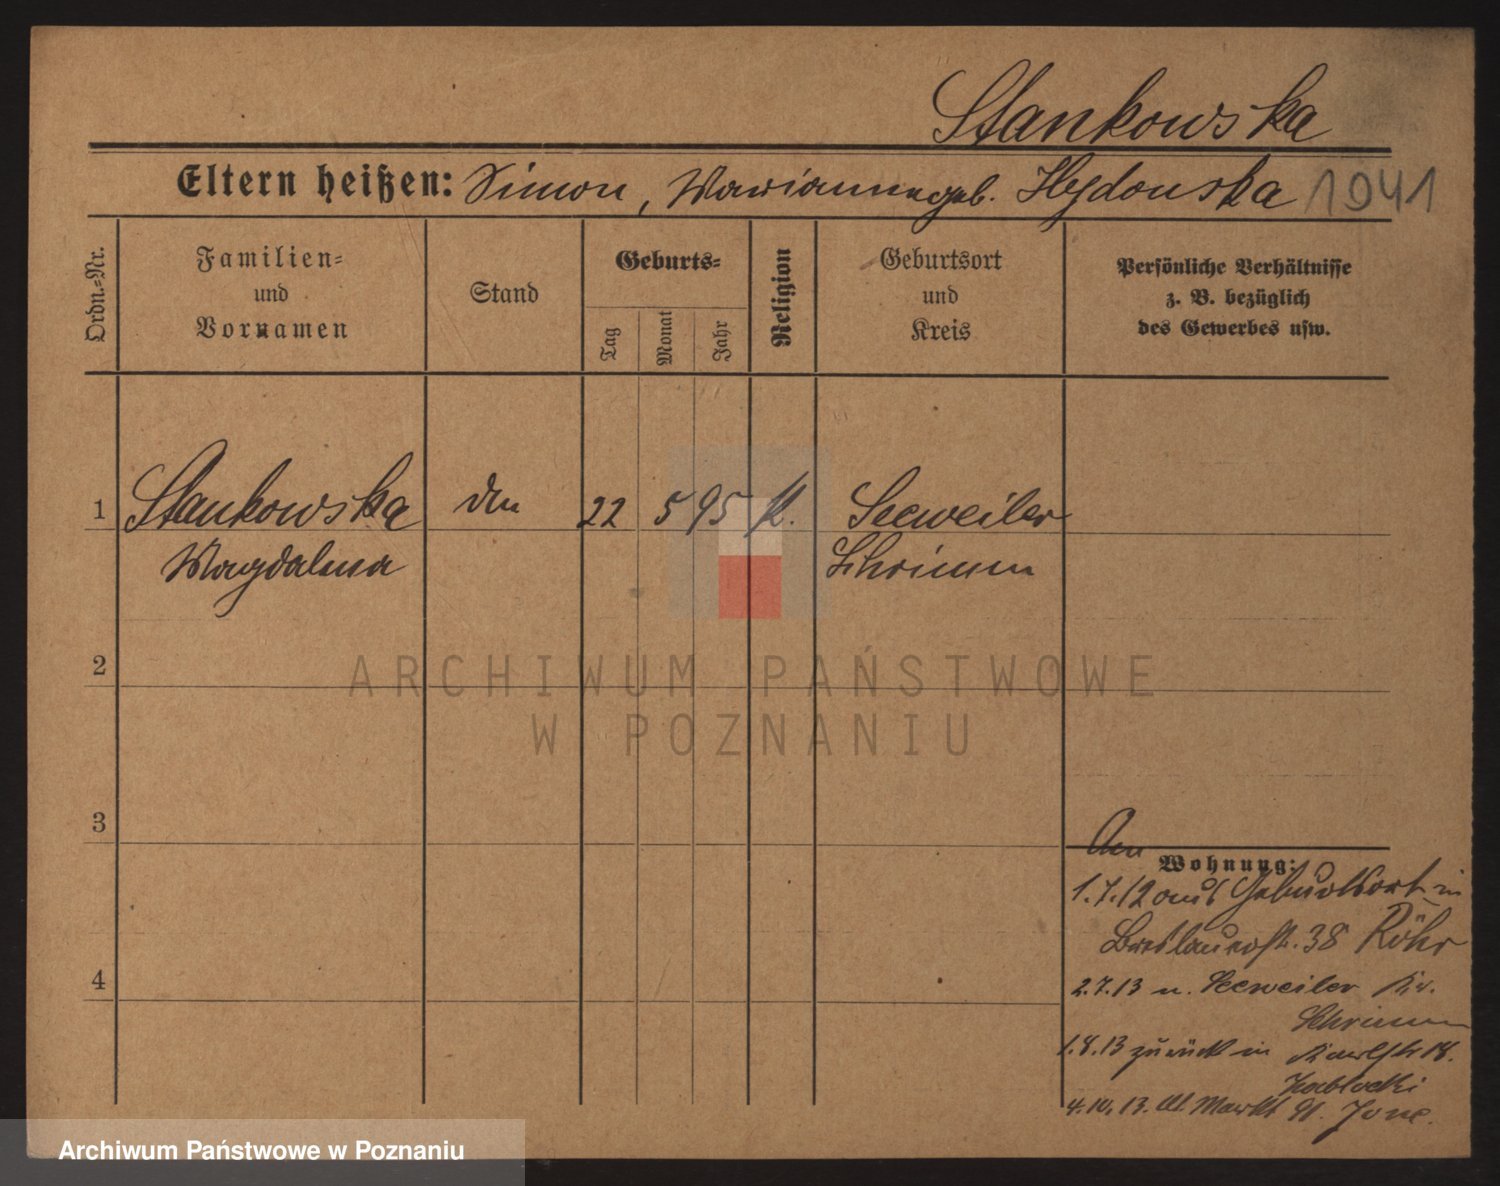 Stankowska
Eltern heißen: Simon, Marianne geb. Hydowska 1941
Ordn.-Nr.
Familien-
und
Vornamen
Stand
Geburts-
Tag
Monat
Jahr
Religion
Geburtsort
und
Kreis
Persönliche Verhältnisse
z. B. bezüglich
des Gewerbes usw.
1 Stankowska 22 5 95 k. Seeweiler
Magdalena Schrimm
2
3
4
Am
Wohnung:
1.7.12 aus Geburtsort in
Breslauerst. 38 Röhr
2.7.13 n. Seeweiler Kr.
Schrimm
1.8.13 zurück in 18.
Zablocki
4.10.13. Alt Markt 91.
ARCHIWUM PAŃSTWOWE
W POZNANIU
Archiwum Państwowe w Poznaniu